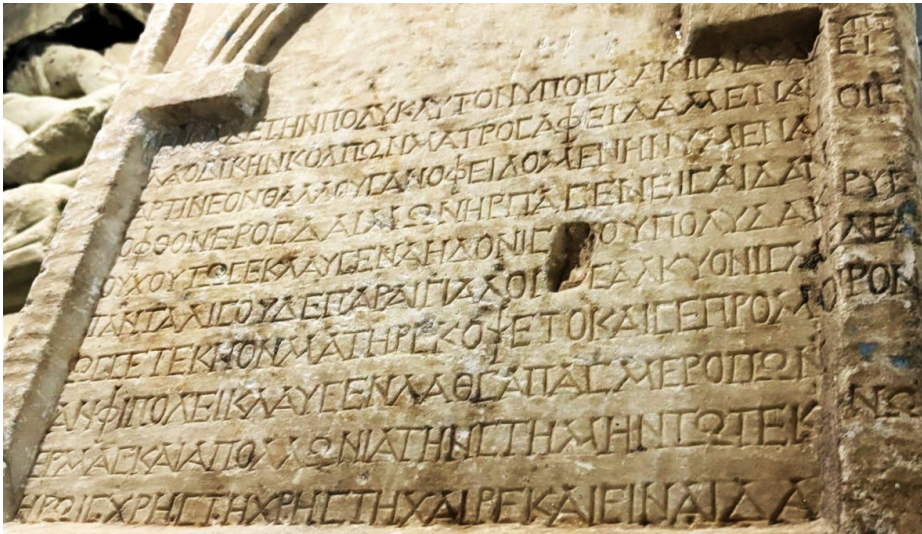 ΕΤΗΝΠΟΛΥΚΛΥΤΟΝΥΠΟΠΛΑΚΙΓΑΙΑ ΕΙ
ΛΑΟΔΙΚΗΝΚΟΛΠΩΝΜΑΤΡΟΣΑΦΕΙΛΑΜΕΝΑ ΟΙΣ
ΑΡΤΙΝΕΟΝΘΑΛΛΟΥΣΑΝΟΦΕΙΛΟΜΕΝΗΝΥΜΕΝΑ
ΟΦΘΟΝΕΡΟΣΔΑΙΜΩΝΗΡΠΑΣΕΝΕΙΣΑΙΔΑ ΡΥΕ
ΟΥΧΟΥΤΩΣΕΚΛΑΥΣΕΝΑΗΔΟΝΙΣ ΟΥΠΟΛΥΔΑ ΛΕΑ
ΠΑΝΤΑΛΙΣΟΥΔΕΠΑΡΑΙΓΙΑΛΟΙ ΕΑΛΚΥΟΝΙΣ
ΩΣΣΕΤΕΚΝΟΝΜΑΤΗΡΕΚΟΨΕΤΟΚΑΙΣΕΠΡΟΜΟ ΡΟΝ
ΑΜΦΙΠΟΛΕΙΙΚΛΑΥΣΕΝΛΑΘΣΑΠΑΣΜΕΡΟΠΩΝ
ΕΡΜΑΣΚΑΙΑΠΟΛΛΩΝΙΑΤΗΝΣΤΗΛΗΝΤΩΤΕΚ ΝΩ
ΗΡΩΙΣΧΡΗΣΤΗΧΡΗΣΤΗΧΑΙΡΕΚΑΙΕΙΝΑΙΔΑ